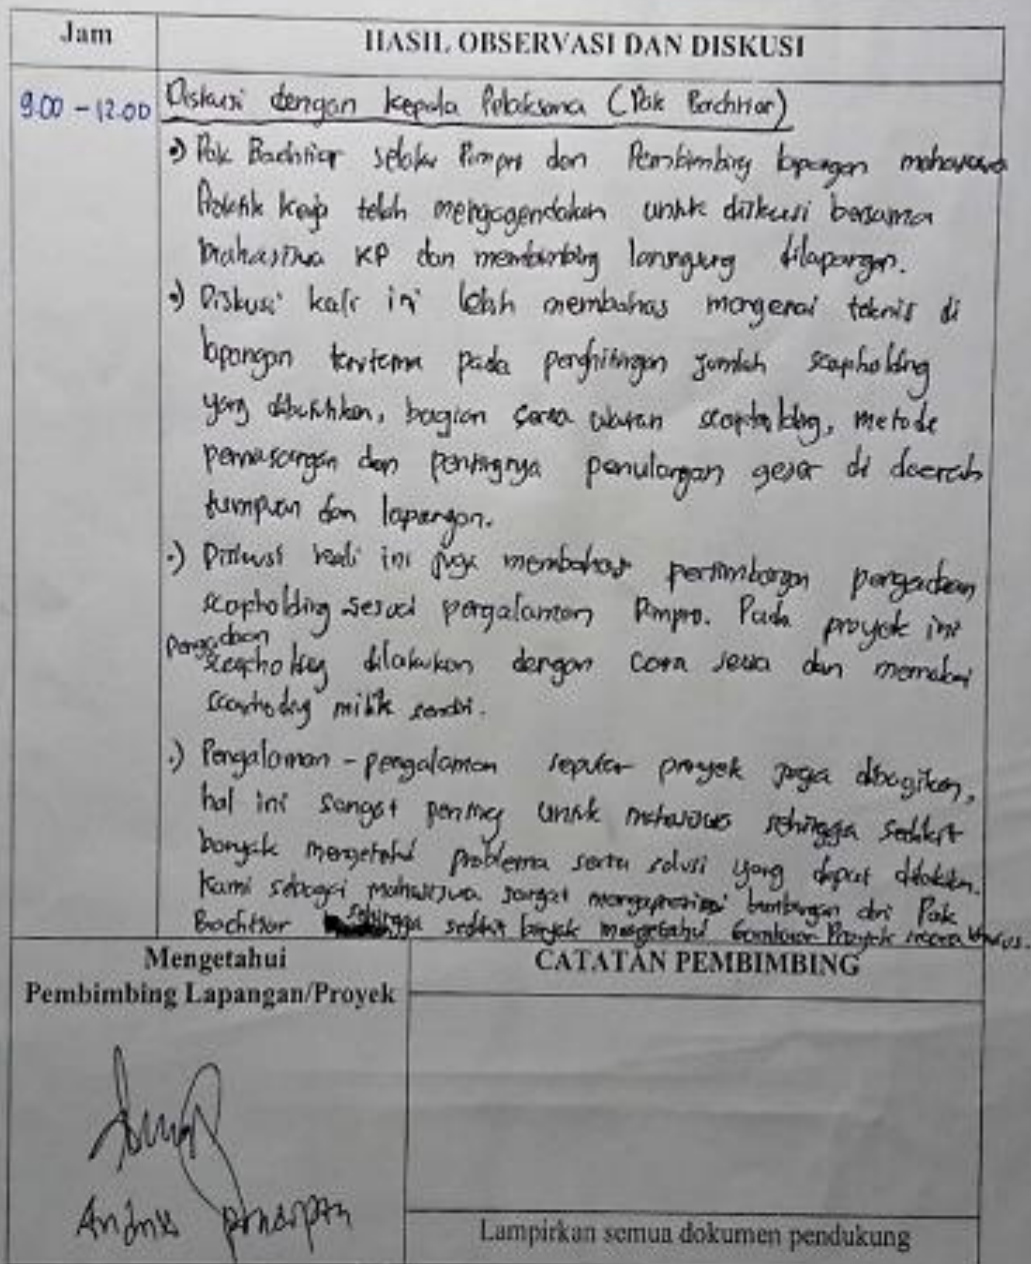 Jam
HASIL OBSERVASI DAN DISKUSI
9.00 - 12.00
Diskusi dengan Kepala Pelaksana (Pak Bachtiar)
•) Pak Bachtiar selaku Pimpro dan Pembimbing lapangan mahasiswa
Praktik Kerja telah mengagendakan untuk diskusi bersama
mahasiswa KP dan membimbing langsung dilapangan.
•) Diskusi kali ini lebih membahas mengenai teknis di
lapangan terutama pada perhitungan jumlah scapholding
yang dibutuhkan, bagian serta ukuran scapholding, metode
pemasangan dan pentingnya penulangan geser di daerah
tumpuan dan lapangan.
•) Diskusi kali ini juga membahas pertimbangan pengadaan
scapholding sesuai pengalaman Pimpro. Pada proyek ini
Pengadaan
scapholding dilakukan dengan cara sewa dan memakai
scapholding milik sendiri.
•) Pengalaman - pengalaman seputar proyek juga dibagikan,
hal ini sangat penting untuk mahasiswa sehingga sedikit
banyak mengetahui problema serta solusi yang dapat dilakukan.
Kami sebagai mahasiswa sangat mengapresiasi bimbingan dri Pak
Bachtiar sehingga sedikit banyak mengetahui Gambaran Proyek secara khusus.
Mengetahui
Pembimbing Lapangan/Proyek
CATATAN PEMBIMBING
Lampirkan semua dokumen pendukung